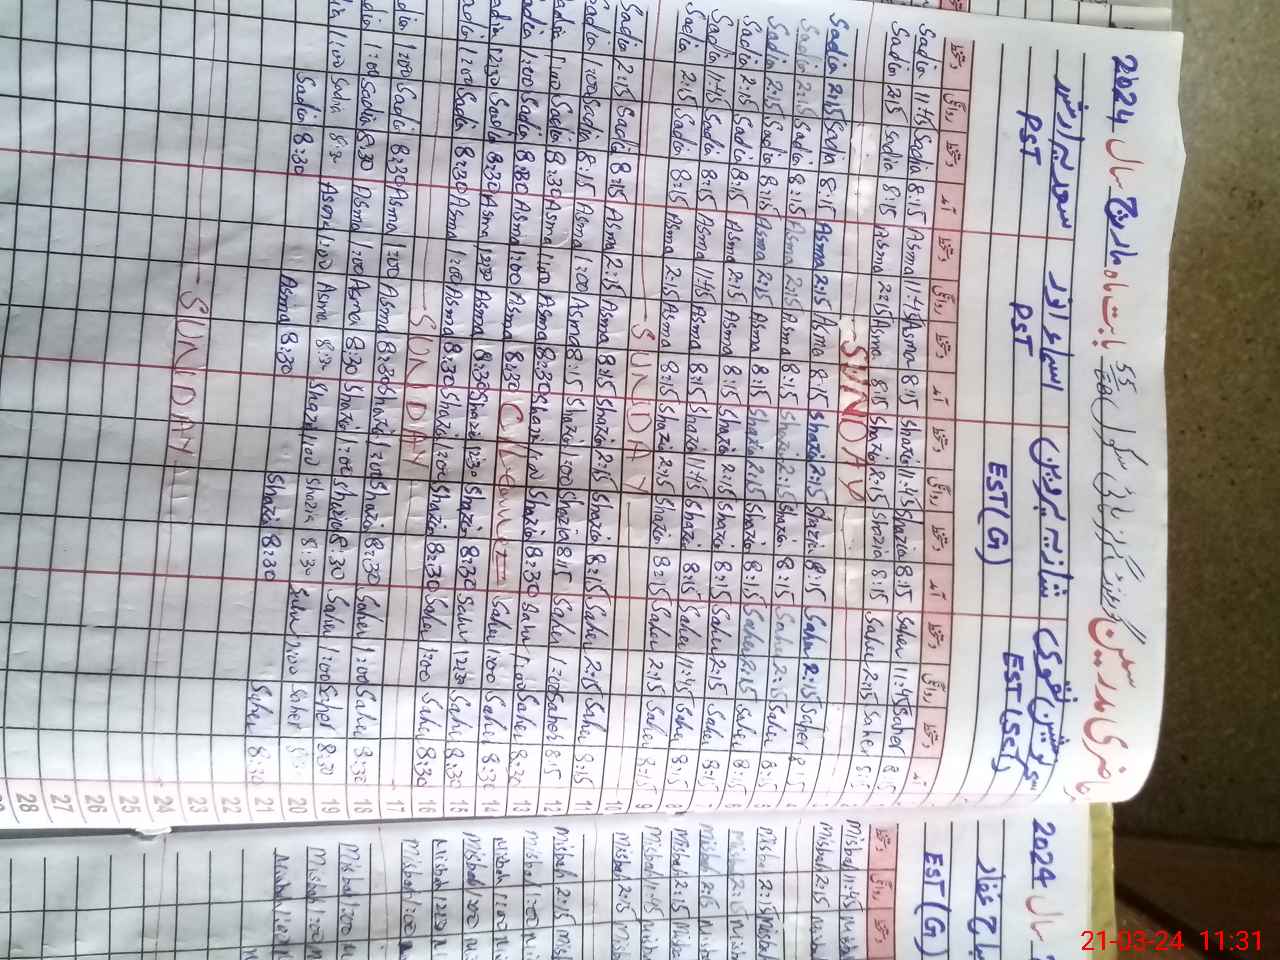 حاضری معلمین گورنمنٹ گرلز ہائی سکول بابت ماہ مارچ سال 2024
سعدیہ ارشد اسماء انور شازیہ پروین سحرش نقوی
PST PST EST(G) EST(Sc)
دستخط روانگی دستخط آمد دستخط روانگی دستخط آمد دستخط روانگی دستخط آمد دستخط روانگی دستخط آمد
Sadia 11:45 Sadia 8:15 Asma 11:45 Asma 8:15 Shazia 11:45 Shazia 8:15 Saher 11:45 Saher 8:15 1
Sadia 2:15 Sadia 8:15 Asma 2:15 Asma 8:15 Shazia 2:15 Shazia 8:15 Saher 2:15 Saher 8:15 2
SUNDAY 3
Sadia 2:15 Sadia 8:15 Asma 2:15 Asma 8:15 Shazia 2:15 Shazia 8:15 Saher 2:15 Saher 8:15 4
Sadia 2:15 Sadia 8:15 Asma 2:15 Asma 8:15 Shazia 2:15 Shazia 8:15 Saher 2:15 Saher 8:15 5
Sadia 2:15 Sadia 8:15 Asma 2:15 Asma 8:15 Shazia 2:15 Shazia 8:15 Saher 2:15 Saher 8:15 6
Sadia 2:15 Sadia 8:15 Asma 2:15 Asma 8:15 Shazia 2:15 Shazia 8:15 Saher 2:15 Saher 8:15 7
Sadia 11:45 Sadia 8:15 Asma 11:45 Asma 8:15 Shazia 11:45 Shazia 8:15 Saher 11:45 Saher 8:15 8
Sadia 2:15 Sadia 8:15 Asma 2:15 Asma 8:15 Shazia 2:15 Shazia 8:15 Saher 2:15 Saher 8:15 9
SUNDAY 10
Sadia 2:15 Sadia 8:15 Asma 2:15 Asma 8:15 Shazia 2:15 Shazia 8:15 Saher 2:15 Saher 8:15 11
Sadia 1:00 Sadia 8:15 Asma 1:00 Asma 8:15 Shazia 1:00 Shazia 8:15 Saher 1:00 Saher 8:15 12
Sadia 1:00 Sadia 8:30 Asma 1:00 Asma 8:30 Shazia 1:00 Shazia 8:30 Saher 1:00 Saher 8:30 13
Sadia 1:00 Sadia 8:30 Asma 1:00 Asma 8:30 C/Leave Saher 1:00 Saher 8:30 14
Sadia 12:30 Sadia 8:30 Asma 12:30 Asma 8:30 Shazia 12:30 Shazia 8:30 Saher 12:30 Saher 8:30 15
Sadia 1:00 Sadia 8:30 Asma 1:00 Asma 8:30 Shazia 1:00 Shazia 8:30 Saher 1:00 Saher 8:30 16
SUNDAY 17
Sadia 1:00 Sadia 8:30 Asma 1:00 Asma 8:30 Shazia 1:00 Shazia 8:30 Saher 1:00 Saher 8:30 18
Sadia 1:00 Sadia 8:30 Asma 1:00 Asma 8:30 Shazia 1:00 Shazia 8:30 Saher 1:00 Saher 8:30 19
Sadia 1:00 Sadia 8:30 Asma 1:00 Asma 8:30 Shazia 1:00 Shazia 8:30 Saher 1:00 Saher 8:30 20
Sadia 8:30 Asma 8:30 Shazia 8:30 Saher 8:30 21
22
23
SUNDAY 24
25
26
27
28
سال 2024
EST(G)
دستخط روانگی دستخط
Misbah 11:45
Misbah 2:15
Misbah 2:15
Misbah 2:15
Misbah 2:15
Misbah 2:15
Misbah 11:45
Misbah 2:15
Misbah 2:15
Misbah 1:00
Misbah 1:00
Misbah 1:00
Misbah 12:30
Misbah 1:00
Misbah 1:00
Misbah 1:00
Misbah 1:00
21-03-24 11:31